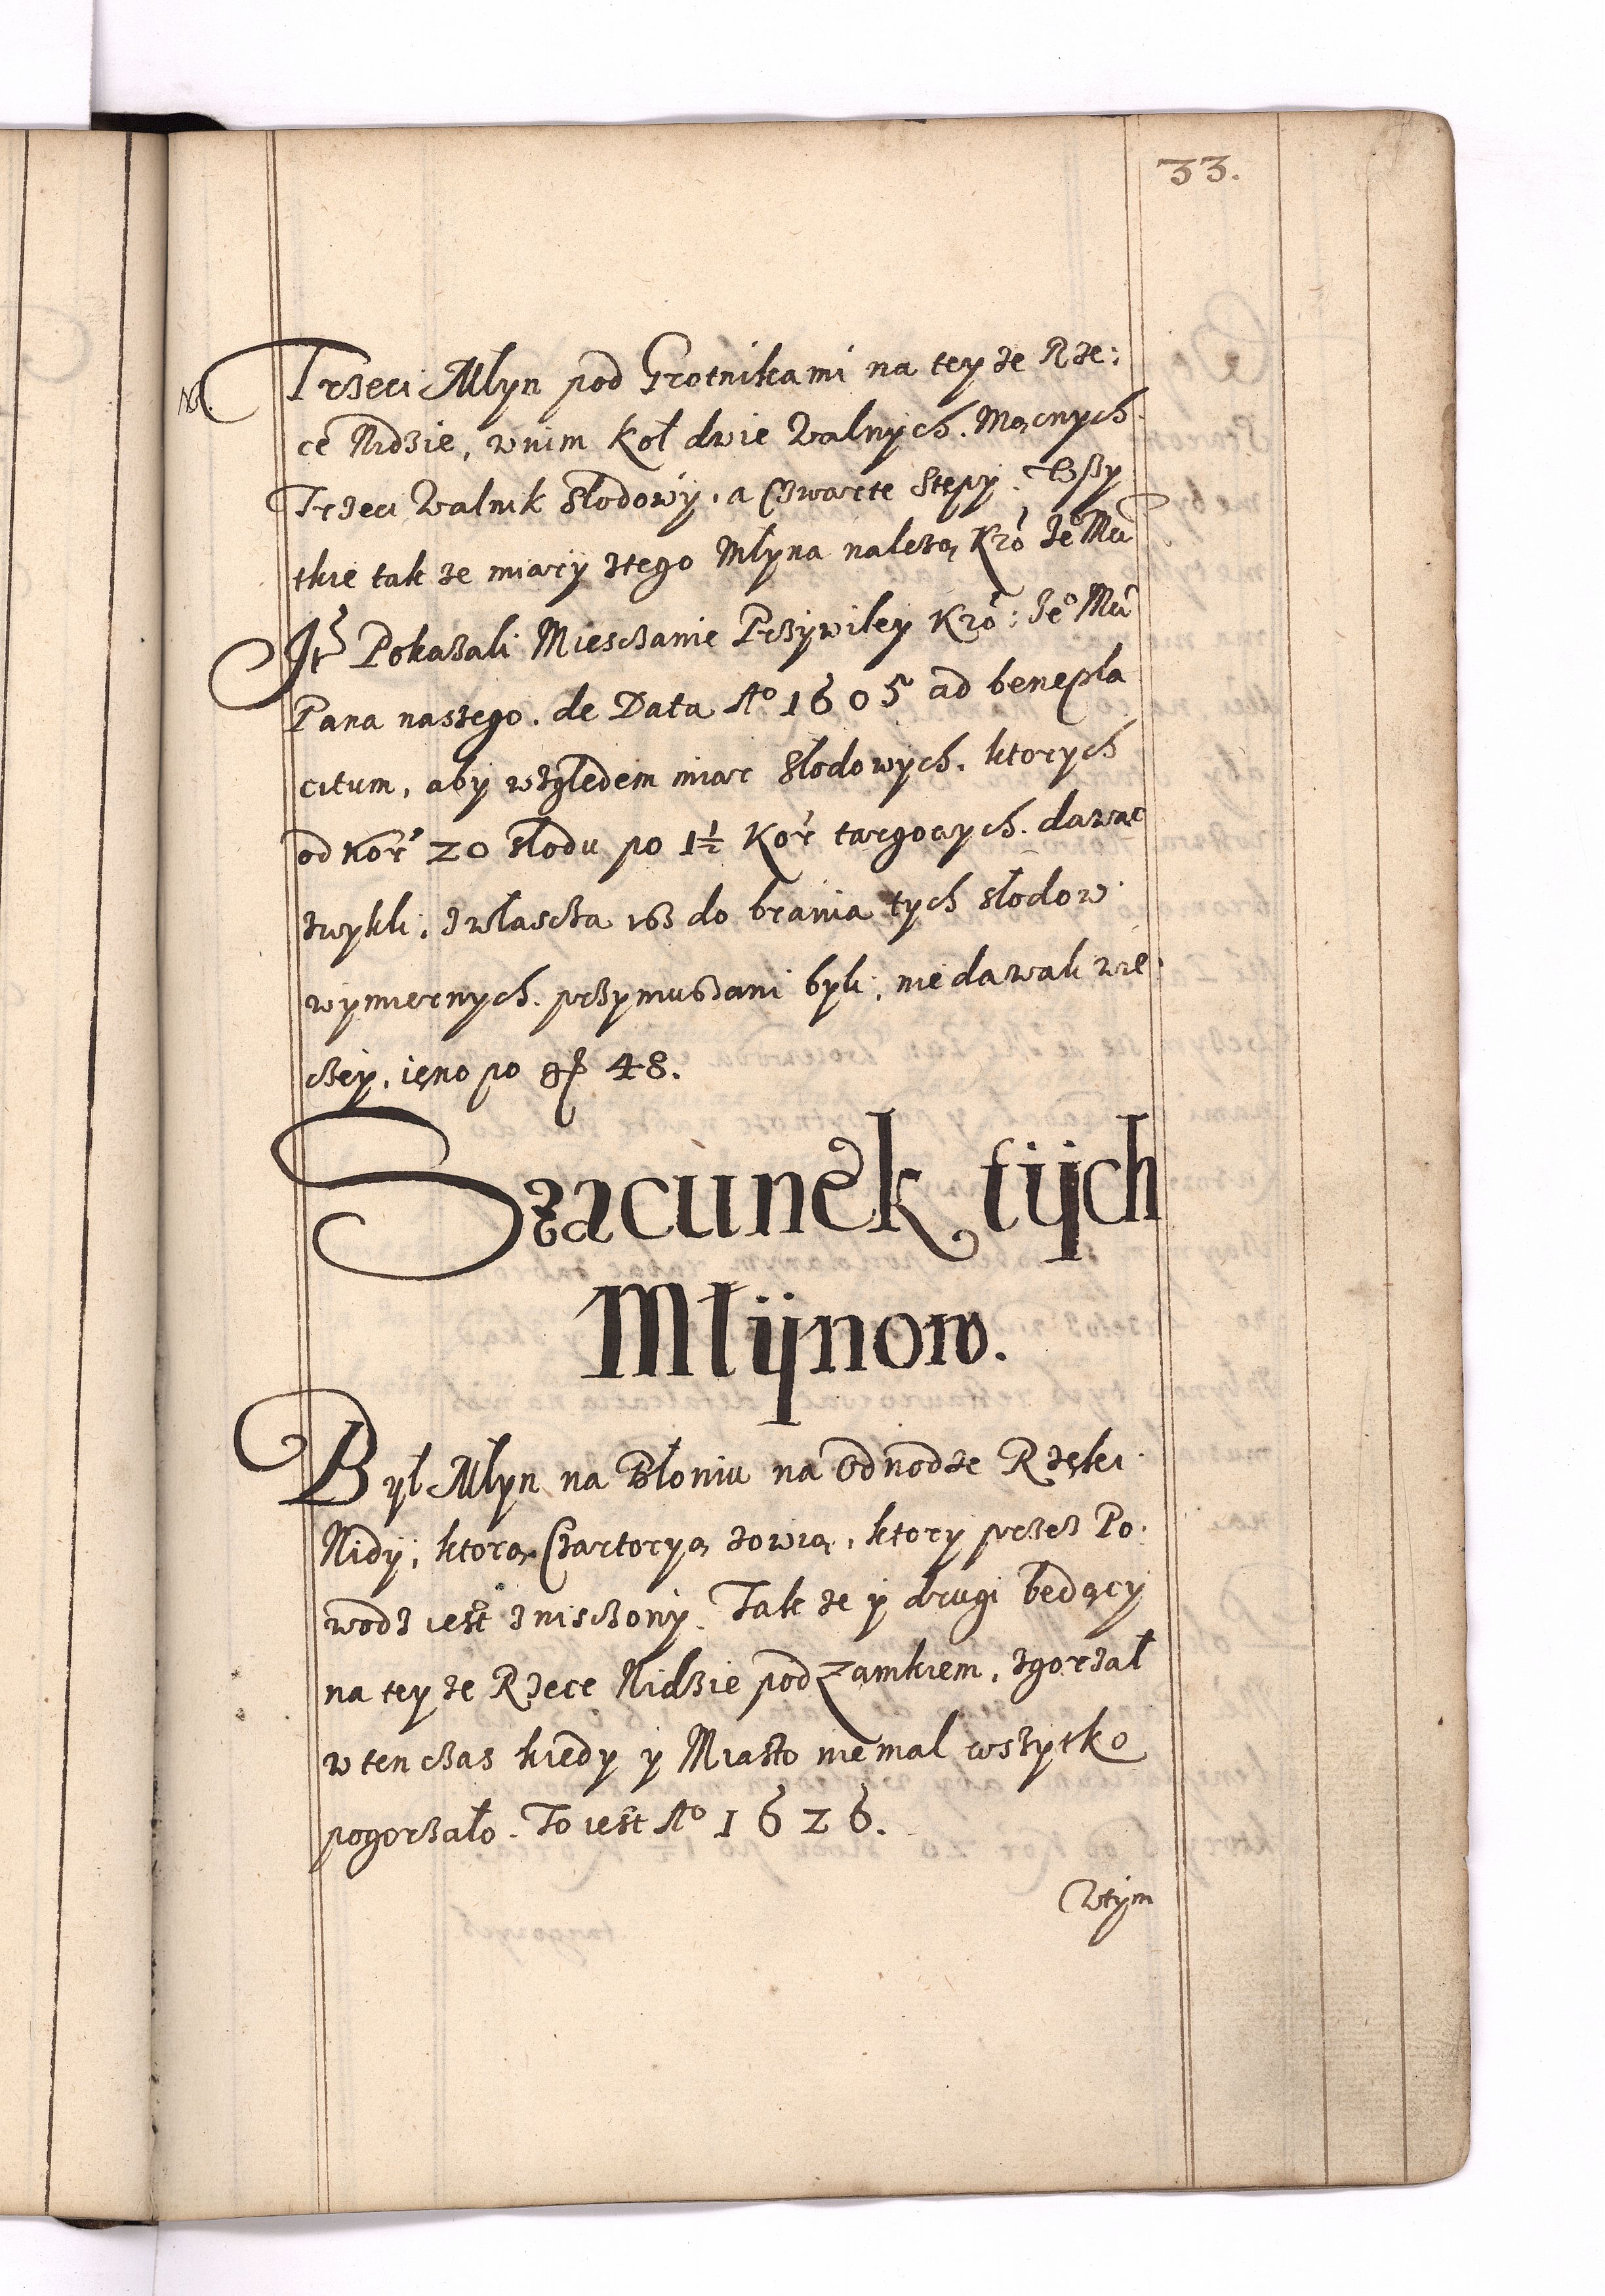 33.
NB.
Trzeci Młyn pod Grotnikami na tey ze Rze:
ce Nidzie, w nim Koł dwie Walnych. Mącnych
Trzeci Walnik Słodowy, a Czwarte Stępy. Wszy
tkie tak ze miary ztego Młyna nalezą Kro Je° Mci
Jt Pokazali Miesczanie Przywiley Kro: Je° Mci
Pana naszego. de Data A° 1605 ad benepla
citum, aby względem miar Słodowych. ktorych
od Kor 20 słodu po 1½ Kor targowych. dawac
zwykli, zwłascza isz do brania tych słodow
wymiernych. przymuszani byli, nie dawali wie
czey, ieno po gr 48.
Szacunek tych
Młynow.
Był Młyn na Błoniu na Odnodze Rzeki
Nidy, ktorą Czartoryą zowią, ktory przez Po
wodz iest zniszczony. Tak ze y drugi będący
na tey ze Rzece Nidzie pod Zamkiem, zgorzał
w ten czas kiedy y Miasto niemal wszytko
pogorzało. To iest A° 1626.
Wtym